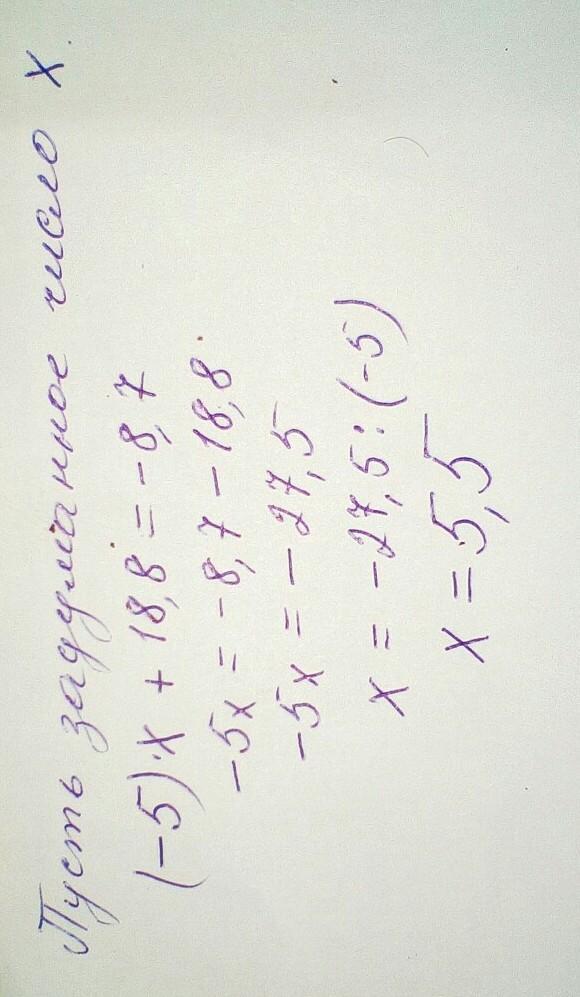 Пусть задуманное число x.
(-5)·x + 18,8 = -8,7
-5x = -8,7 - 18,8
-5x = -27,5
x = -27,5 : (-5)
x = 5,5